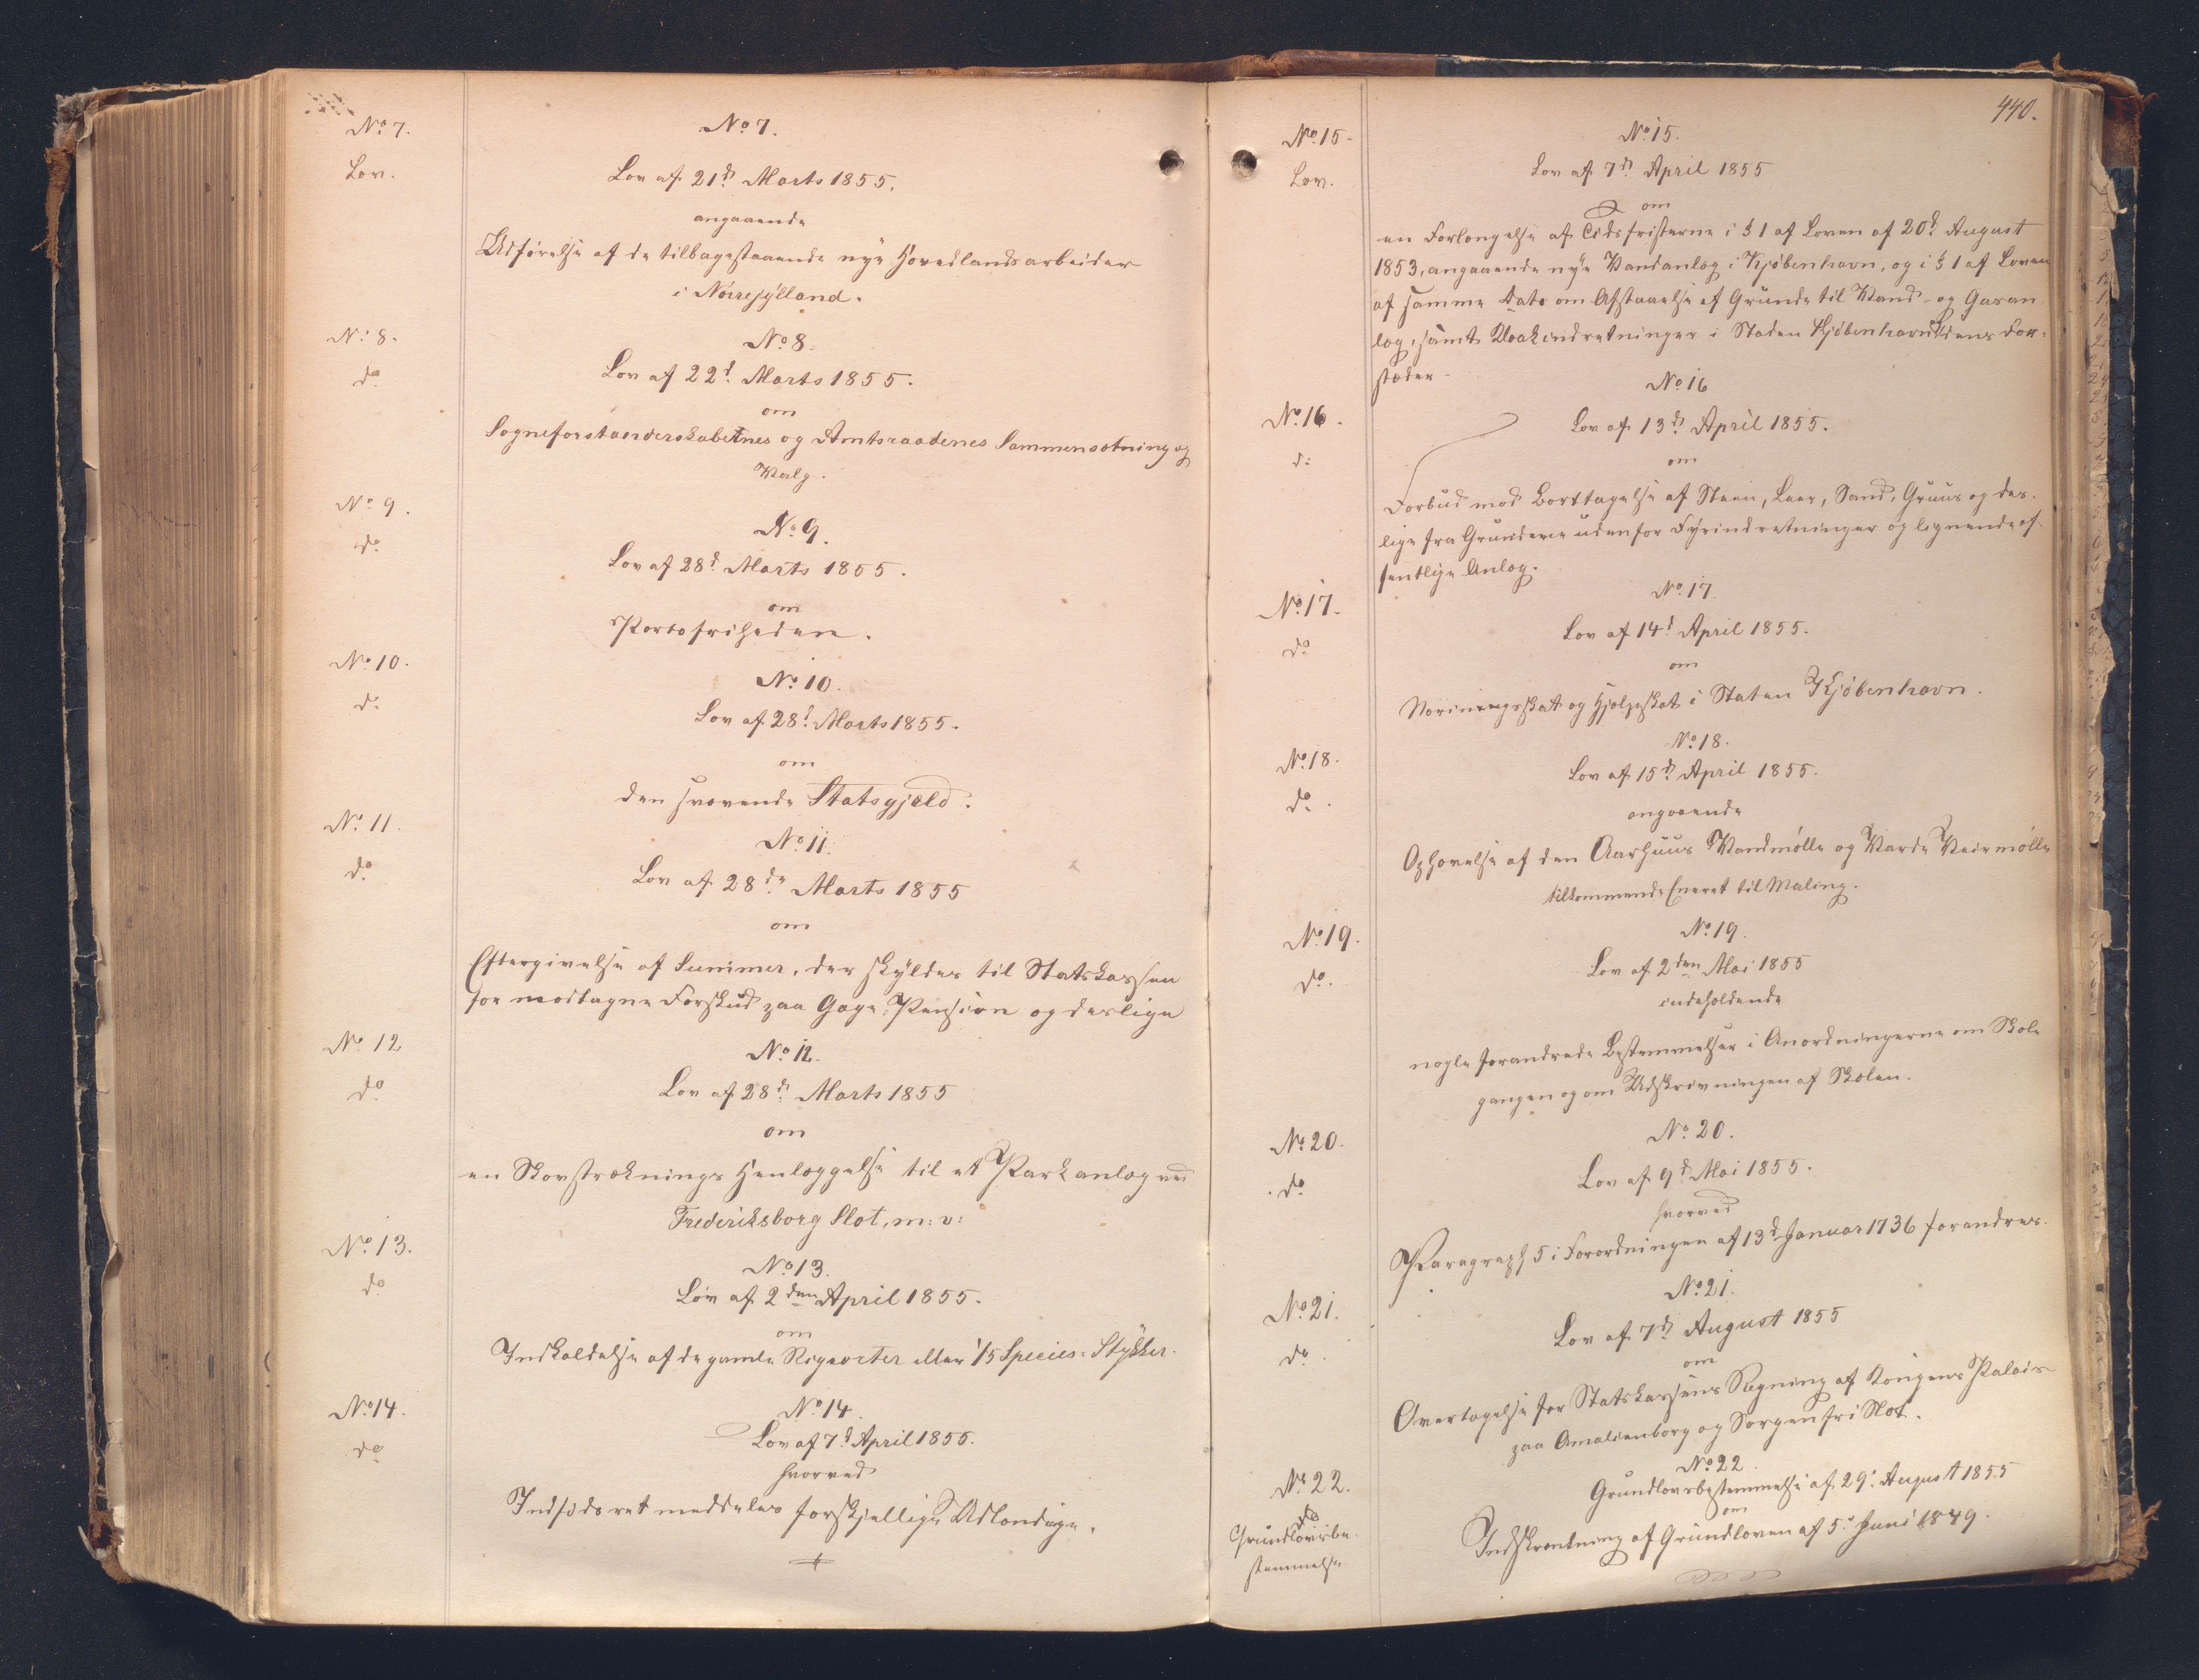 No 7.
Lov.
No 7.
Lov af 21d Marts 1855.
angaaende
Udførelse af de tilbagestaaende nye Hovedlandsarbeider
i Nørrejylland.
No 8.
do
No 8.
Lov af 22d Marts 1855.
om
Sogneforstanderskabernes og Amtsraadenes Sammensætning og
Valg.
No 9.
do
No 9.
Lov af 28d Marts 1855.
om
Portofriheden.
No 10.
do
No 10.
Lov af 28d Marts 1855.
om
den svævende Statsgjæld.
No 11.
do
No 11.
Lov af 28de Marts 1855
om
Eftergivelse af Summer, der skyldes til Statskassen
for modtagne Forskud paa Gage, Pension og deslige
No 12
do
No 12.
Lov af 28d Marts 1855
om
en Skovstræknings Henlæggelse til et Parkanlæg ved
Frederiksborg Slot, m: v:
No 13.
do
No 13.
Lov af 2den April 1855.
om
Indkaldelse af de gamle Rigsorter eller 1/5 Species-Stykker.
No 14.
do
No 14.
Lov af 7d April 1855.
hvorved
Indfødsret meddeles forskjellige Udlændinge.
440.
No 15.
Lov.
No 15.
Lov af 7d April 1855
om
en Forlængelse af Tidsfristerne i § 1 af Loven af 20d August
1853, angaaende nye Vandanlæg i Kjøbenhavn, og i § 1 af Loven
af samme Dato om Afstaaelse af Grunde til Vand- og Gasan
læg, samt Kloakindretninger i Staden Kjøbenhavn & dens For-
stæder.
No 16.
do
No 16
Lov af 13d April 1855.
om
Forbud mod Borttagelse af Steen, Leer, Sand, Gruus og des-
lige fra Grundene udenfor Fyrindretninger og lignende of-
fentlige Anlæg.
No 17.
do
No 17.
Lov af 14d April 1855.
om
Næringsskat og Hjælpeskat i Staden Kjøbenhavn.
No 18.
do
No 18.
Lov af 15d April 1855.
angaaende
Ophævelse af den Aarhuus Vandmølle og Varde Veirmølle
tilkommende Eneret til Maling.
No 19.
do
No 19.
Lov af 2den Mai 1855
indeholdende
nogle forandrede Bestemmelser i Anordningerne om Skole
gangen og om Udskrivningen af Skolen.
No 20.
do
No 20.
Lov af 9d Mai 1855.
hvorved
Paragraph 5 i Forordningen af 13d Januar 1736 forandres.
No 21.
do
No 21.
Lov af 7d August 1855
om
Overtagelse for Statskassens Regning af Kongens Palais
paa Amalienborg og Sorgenfri Slot.
No 22.
Grundlovsbe-
stemmelse
No 22
Grundlovsbestemmelse af 29. August 1855
om
Indskrænkning af Grundloven af 5. Juni 1849.